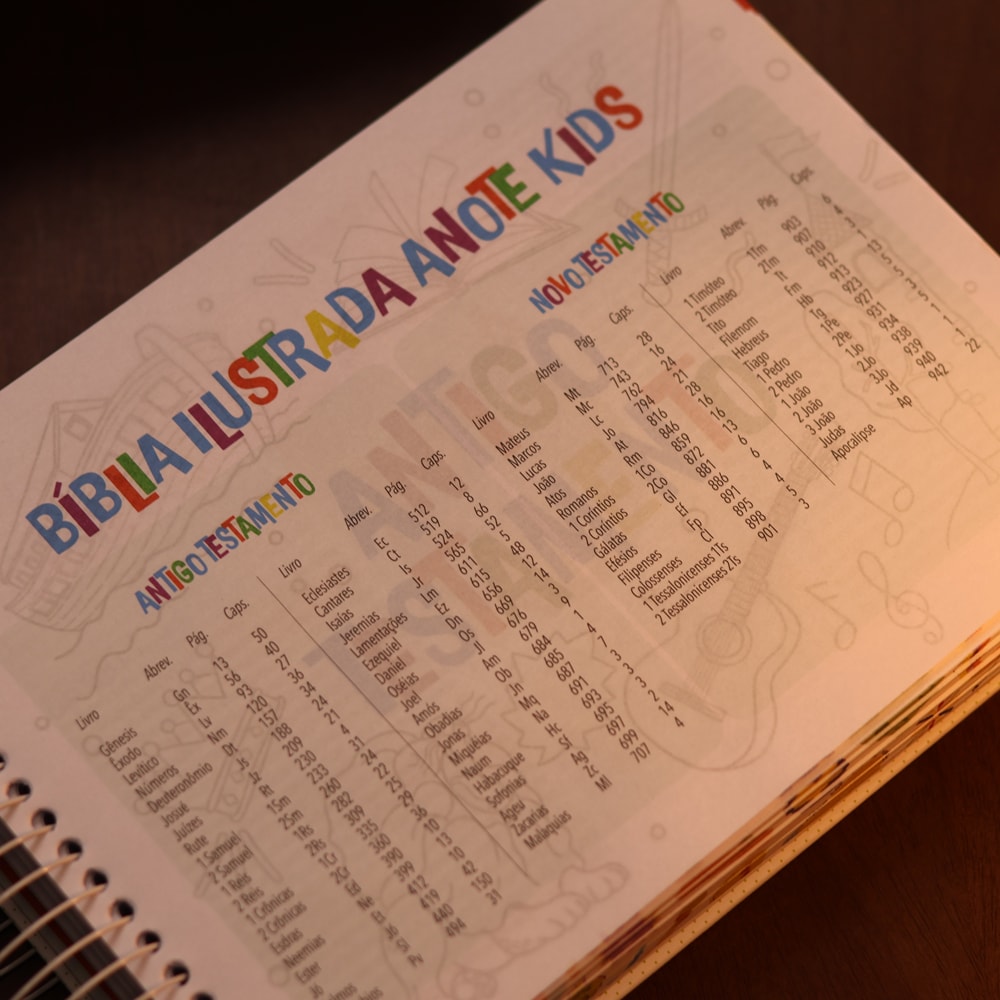 BÍBLIA ILUSTRADA ANOTE KIDS
ANTIGO TESTAMENTO
Livro Abrev. Pág. Caps.
Gênesis Gn 13 50
Êxodo Êx 56 40
Levítico Lv 93 27
Números Nm 120 36
Deuteronômio Dt 157 34
Josué Js 188 24
Juízes Jz 209 21
Rute Rt 230 4
1 Samuel 1Sm 233 31
2 Samuel 2Sm 260 24
1 Reis 1Rs 282 22
2 Reis 2Rs 309 25
1 Crônicas 1Cr 335 29
2 Crônicas 2Cr 360 36
Esdras Ed 390 10
Neemias Ne 399 13
Ester Et 412 10
Jó Jó 419 42
Sl 440 150
Pv 494 31
Livro Abrev. Pág. Caps.
Eclesiastes Ec 512 12
Cantares Ct 519 8
Isaías Is 524 66
Jeremias Jr 565 52
Lamentações Lm 611 5
Ezequiel Ez 615 48
Daniel Dn 656 12
Oséias Os 669 14
Joel Jl 676 3
Amós Am 679 9
Obadias Ob 684 1
Jonas Jn 685 4
Miquéias Mq 687 7
Naum Na 691 3
Habacuque Hc 693 3
Sofonias Sf 695 3
Ageu Ag 697 2
Zacarias Zc 699 14
Malaquias Ml 707 4
NOVO TESTAMENTO
Livro Abrev. Pág. Caps.
Mateus Mt 713 28
Marcos Mc 743 16
Lucas Lc 762 24
João Jo 794 21
Atos At 816 28
Romanos Rm 846 16
1 Coríntios 1Co 859 16
2 Coríntios 2Co 872 13
Gálatas Gl 881 6
Efésios Ef 886 6
Filipenses Fp 891 4
Colossenses Cl 895 4
1 Tessalonicenses 1Ts 898 5
2 Tessalonicenses 2Ts 901 3
Livro Abrev. Pág. Caps.
1 Timóteo 1Tm 903 6
2 Timóteo 2Tm 907 4
Tito Tt 910 3
Filemom Fm 912 1
Hebreus Hb 913 13
Tiago Tg 923 5
1 Pedro 1Pe 927 5
2 Pedro 2Pe 931 3
1 João 1Jo 934 5
2 João 2Jo 938 1
3 João 3Jo 939 1
Judas Jd 940 1
Apocalipse Ap 942 22
ANTIGO
TESTAMENTO